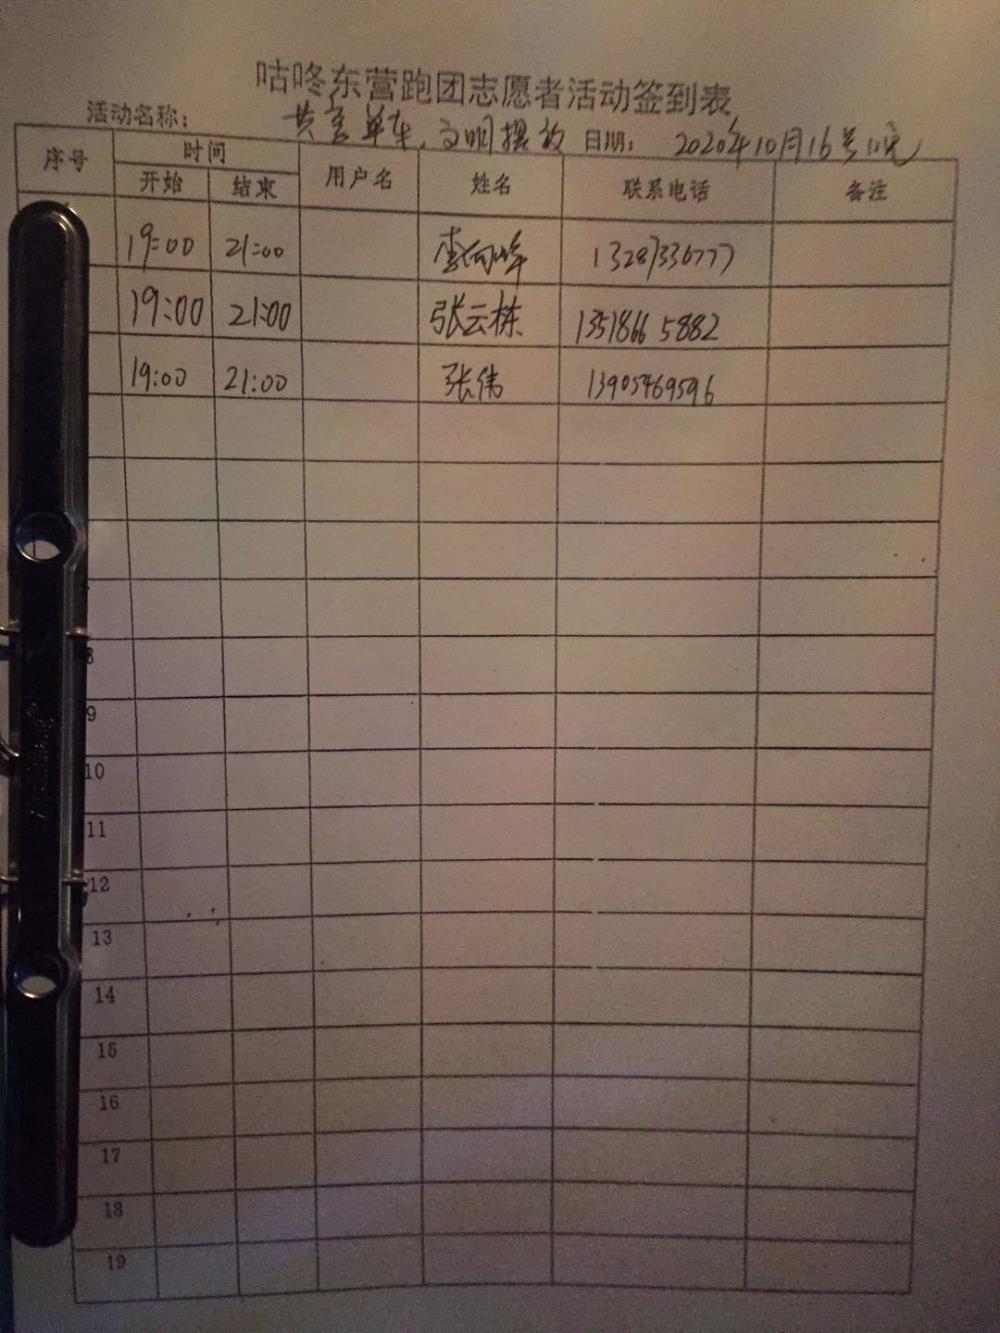 咕咚东营跑团志愿者活动签到表
活动名称： 共享单车，文明摆放 日期： 2020年10月16号
序号 时间 用户名 姓名 联系电话 备注
开始 结束
19:00 21:00 李向峰 13287336777
19:00 21:00 张云栋 13518665882
19:00 21:00 张伟 13905469596
8
9
10
11
12
13
14
15
16
17
18
19